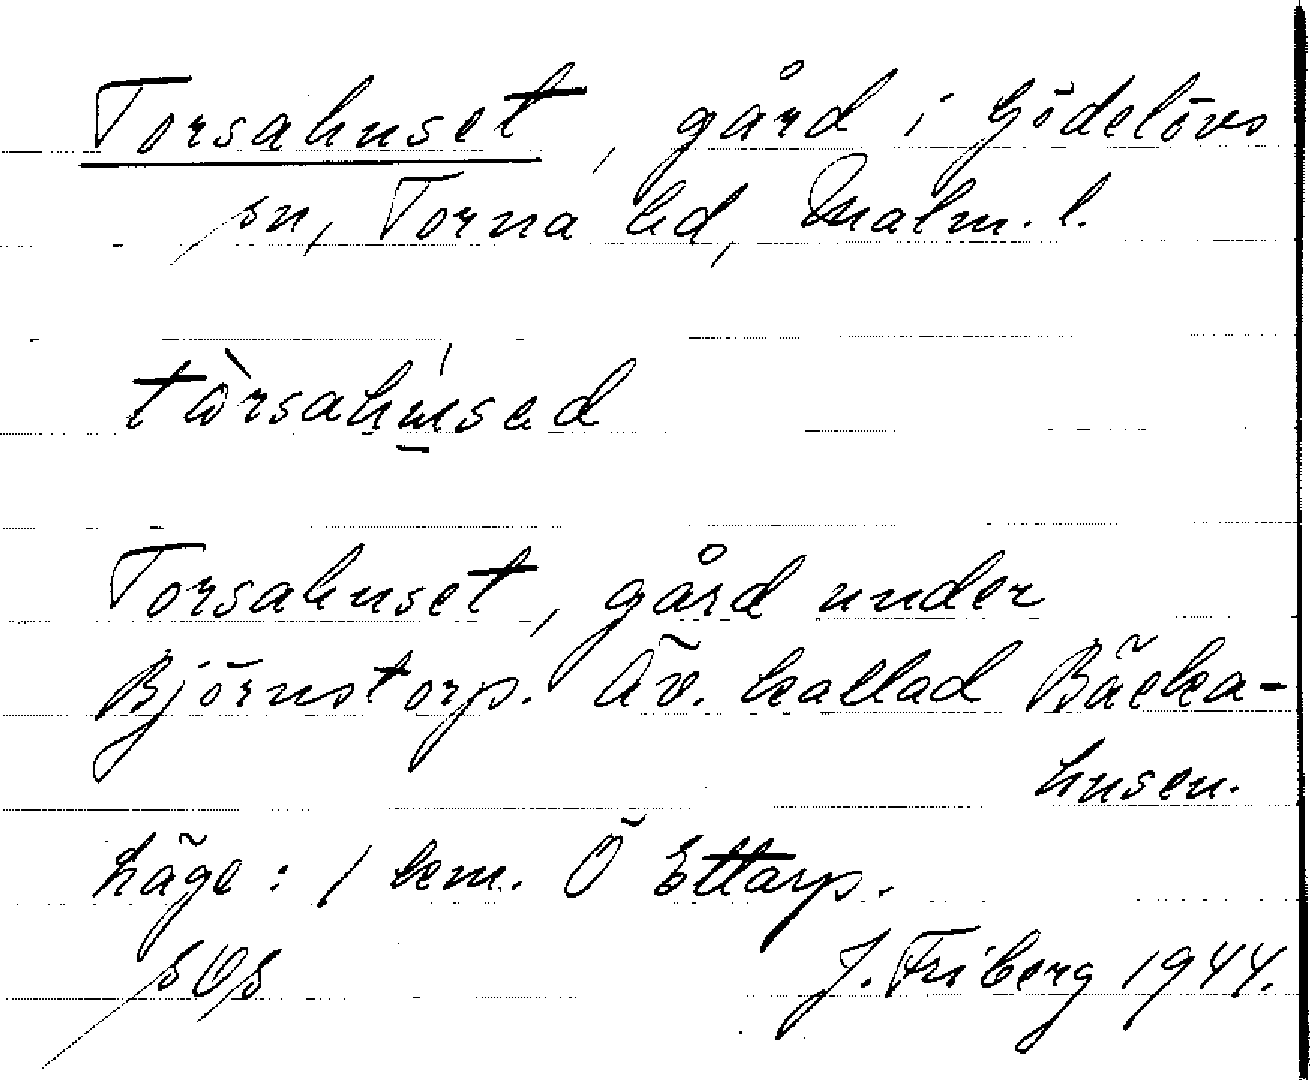 Torsahuset, gård i Gödelövs
sn, Torna hd, Malm. l.
tòrsahúsed
Torsahuset, gård under
Björnstorp. Äv. kallad Bäcka-
husen.
Läge: 1 km. Ö Ettarp.
J. Friberg 1944.